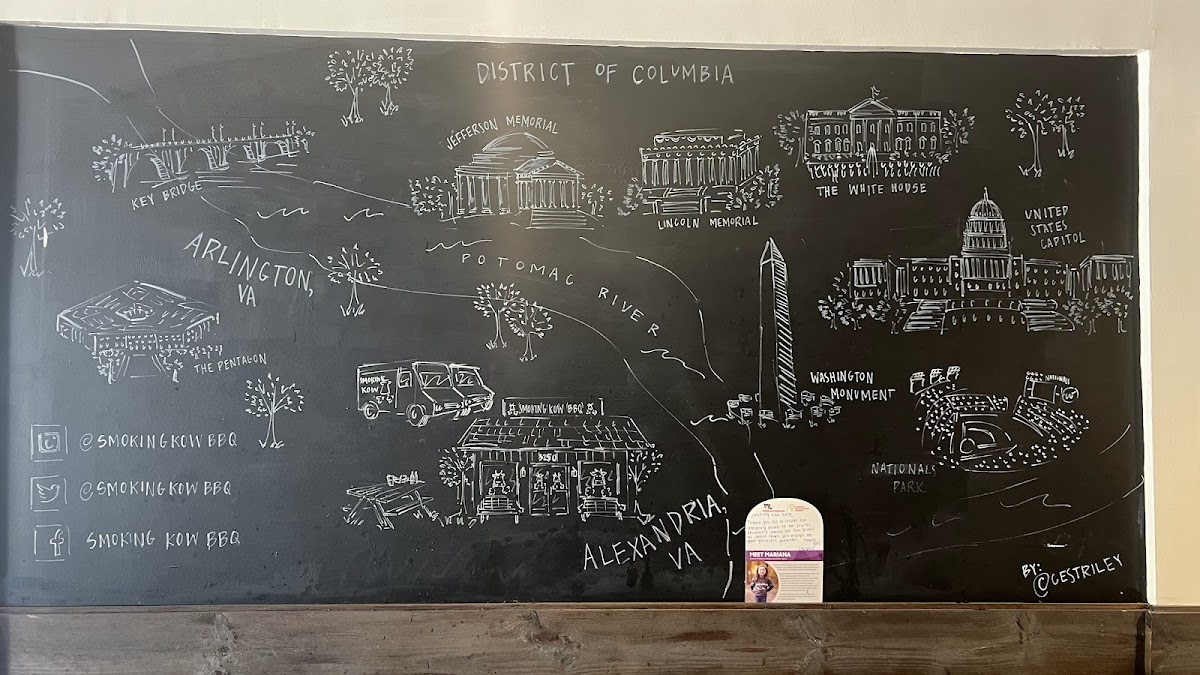 DISTRICT OF COLUMBIA
KEY BRIDGE
JEFFERSON MEMORIAL
LINCOLN MEMORIAL
THE WHITE HOUSE
UNITED
STATES
CAPITOL
ARLINGTON,
VA
POTOMAC RIVER
THE PENTAGON
SMOKING
KOW
SMOKING KOW BBQ
3250
WASHINGTON
MONUMENT
NATIONALS
NATIONALS
PARK
@SMOKINGKOWBBQ
@SMOKINGKOWBBQ
SMOKING KOW BBQ
ALEXANDRIA,
VA
MEET MARIANA
BY:
@GESTRILEY